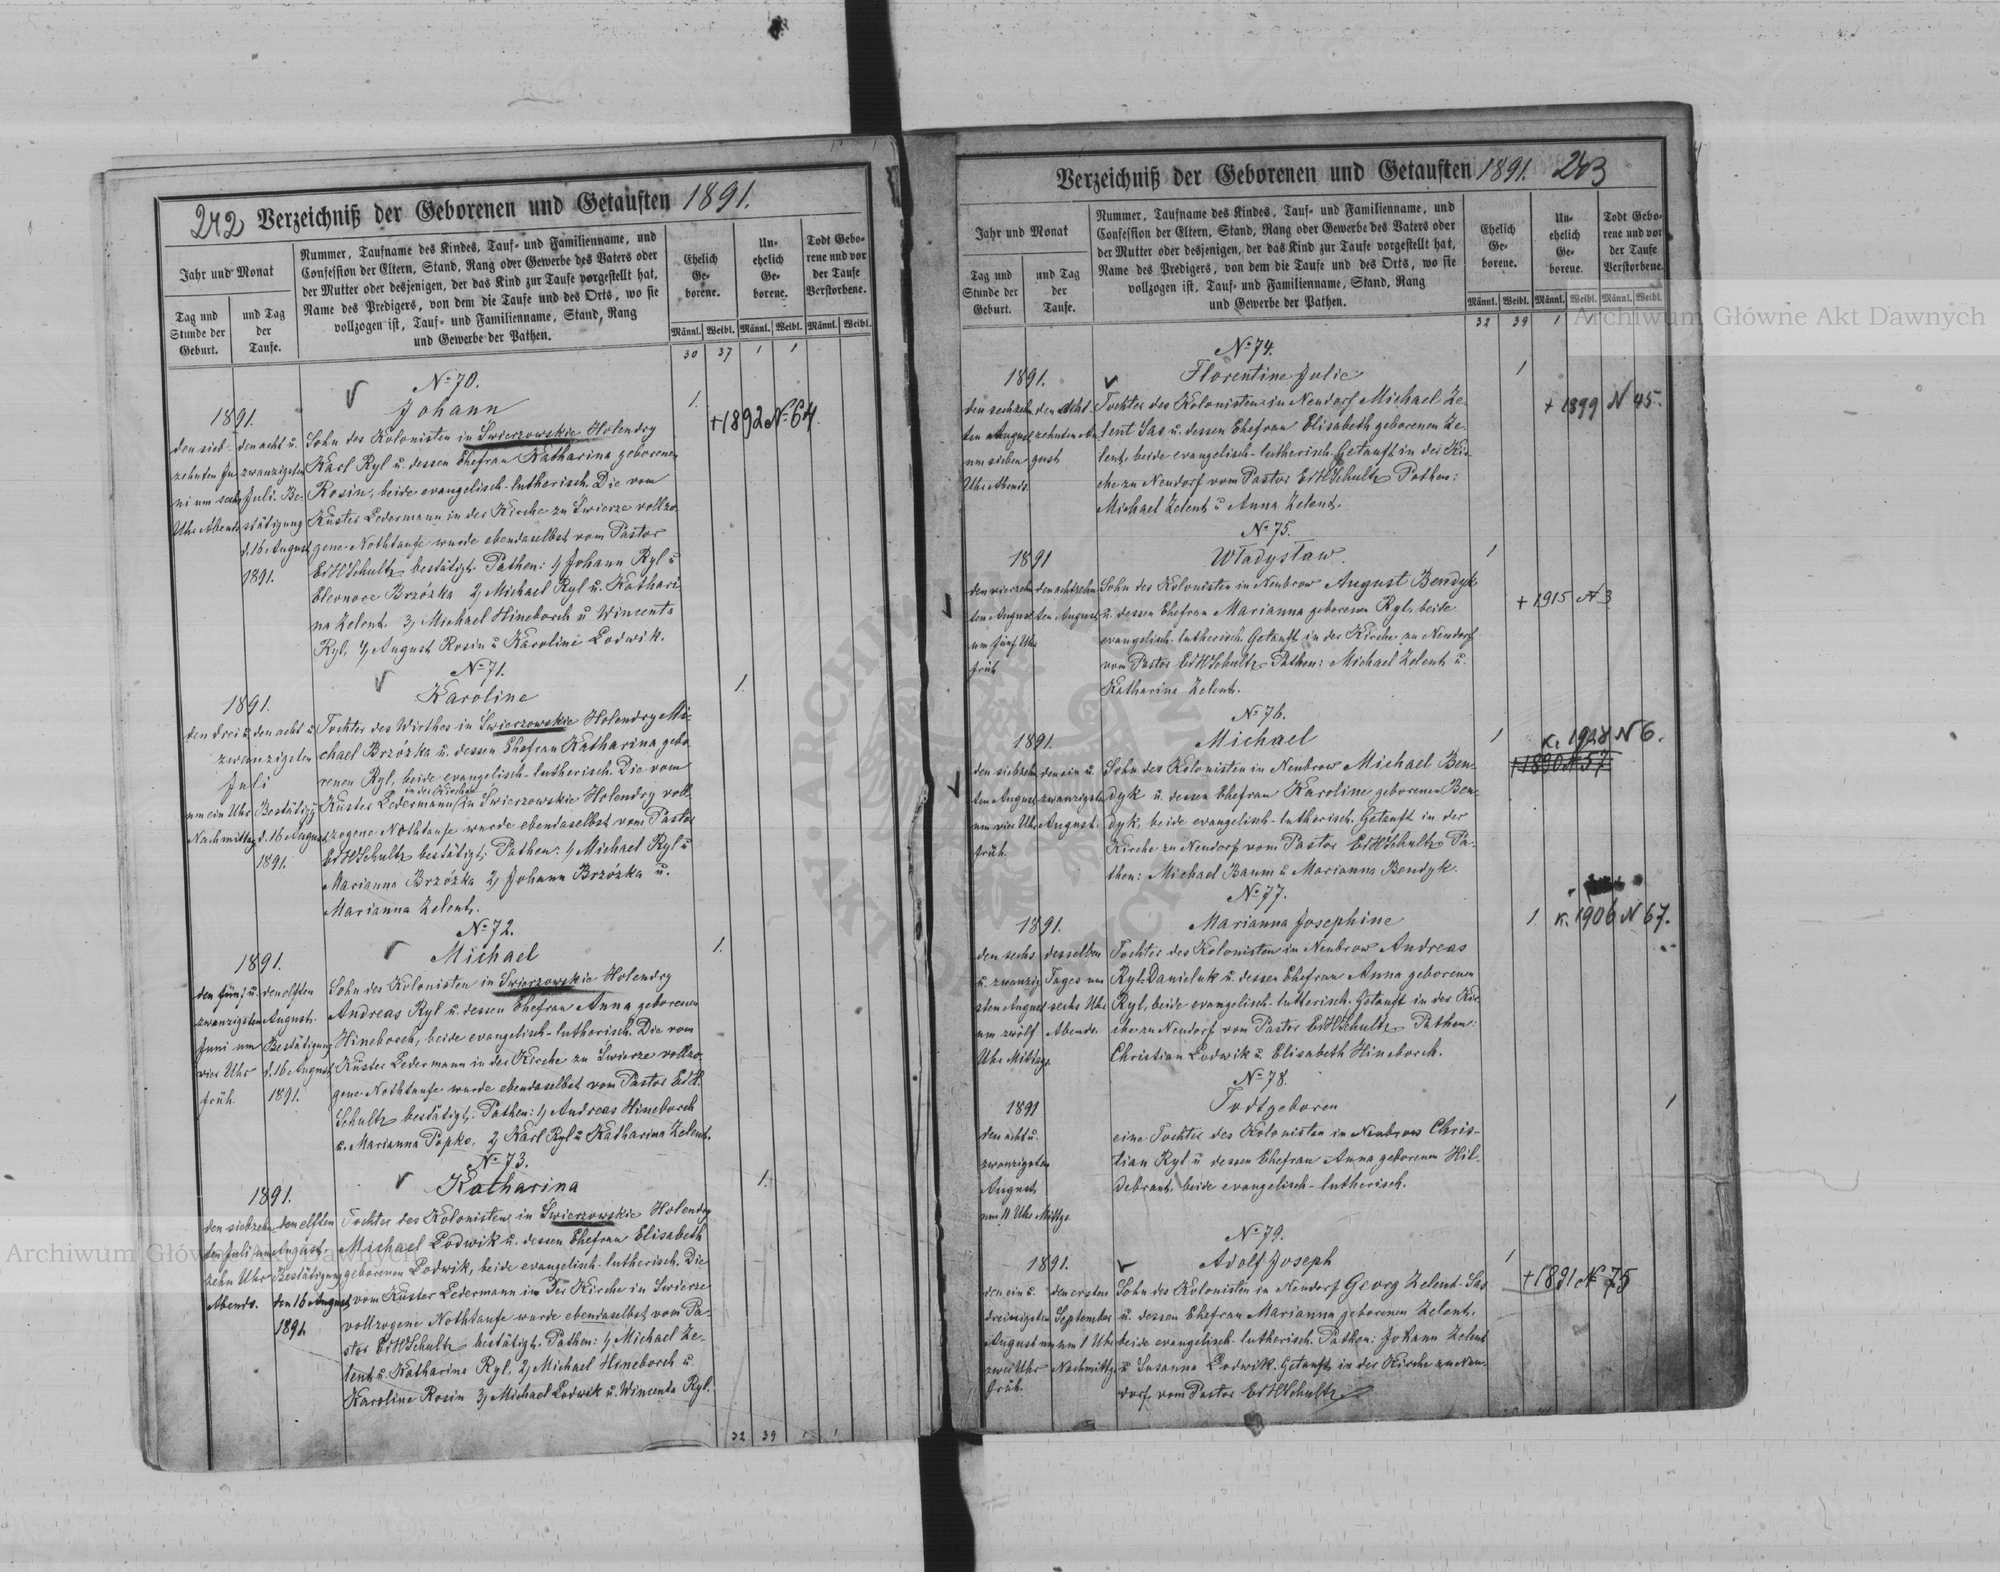 242 Verzeichniß der Geborenen und Getauften 1891.
Jahr und Monat
Tag und Stunde der Geburt.
und Tag der Taufe.
Nummer, Taufname des Kindes, Tauf- und Familienname, und
Confession der Eltern, Stand, Rang oder Gewerbe des Vaters oder
der Mutter oder desjenigen, der das Kind zur Taufe vorgestellt hat,
Name des Predigers, von dem die Taufe und des Orts, wo sie
vollzogen ist, Tauf- und Familienname, Stand, Rang
und Gewerbe der Pathen.
Ehelich Geborene.
Unehelich Geborene.
Todt Geborene und vor der Taufe Verstorbene.
Männl. Weibl. Männl. Weibl. Männl. Weibl.
30 37 1 1
No 70.
Johann
1.
+1892 No 64.
1891.
den sieb-
zehnten Ju-
ni um sechs
Uhr Abends
den acht u.
zwanzigsten
Juli. Be-
stätigung
d. 16 August
1891.
Sohn des Kolonisten in Swierzowskie Holendry
Karl Ryl u. dessen Ehefrau Katharina geborenen
Rosin, beide evangelisch-lutherisch. Die vom
Küster Ledermann in der Kirche zu Swierze vollzo-
gene Nothtaufe wurde ebendaselbst vom Pastor
EdHSchultz bestätigt. Pathen: 1, Johann Ryl u
Eleonore Brzózka 2, Michael Ryl u. Kathari-
na Zelent. 3, Michael Hineborch u Wincenta
Ryl, 4, August Rosin u Karoline Lodwik.
No 71.
Karoline
1.
1891.
den drei u.
zwanzigsten
Juli
um ein Uhr
Nachmittag
den acht u
Bestätig
d. 16 August
1891.
Tochter des Wirthes in Swierzowskie Holendry Mi-
chael Brzózka u. dessen Ehefrau Katharina gebo-
renen Ryl, beide evangelisch-lutherisch. Die vom
in der Kirche
Küster Ledermann zu Swierzowskie Holendry voll-
zogene Nothtaufe wurde ebendaselbst vom Pastor
EdHSchultz bestätigt, Pathen: 1, Michael Ryl u
Marianna Brzózka 2, Johann Brzózka u.
Marianna Zelent.
No 72.
Michael
1.
1891.
den fünf u.
zwanzigsten
Juni um
vier Uhr
früh.
den elften
August.
Bestätigung
d. 16 August
1891.
Sohn des Kolonisten in Swierzowskie Holendry
Andreas Ryl u. dessen Ehefrau Anna geborenen
Hineborch, beide evangelisch-lutherisch. Die vom
Küster Ledermann in der Kirche zu Swierze vollzo-
gene Nothtaufe wurde ebendaselbst vom Pastor EdH.
Schultz bestätigt. Pathen: 1, Andreas Hineborch
u. Marianna Popko, 2, Karl Ryl u Katharina Zelent.
No 73.
Katharina
1.
1891.
den siebzehn-
ten Juli um
zehn Uhr
Abends.
den elften
August.
Bestätigung
den 16 August
1891.
Tochter des Kolonisten in Swierzowskie Holendry
Michael Lodwik u. dessen Ehefrau Elisabeth
geborenen Lodwik, beide evangelisch-lutherisch. Die
vom Küster Ledermann in der Kirche in Swierze
vollzogene Nothtaufe wurde ebendaselbst vom Pa-
stor EdHSchultz bestätigt. Pathen: 1, Michael Ze-
lent u. Katharina Ryl, 2, Michael Hineborch u.
Karoline Rosin 3, Michael Lodwik u. Wincenta Ryl.
32 39 1 1
Verzeichniß der Geborenen und Getauften 1891. 243
Jahr und Monat
Tag und Stunde der Geburt.
und Tag der Taufe.
Nummer, Taufname des Kindes, Tauf- und Familienname, und
Confession der Eltern, Stand, Rang oder Gewerbe des Vaters oder
der Mutter oder desjenigen, der das Kind zur Taufe vorgestellt hat,
Name des Predigers, von dem die Taufe und des Orts, wo sie
vollzogen ist, Tauf- und Familienname, Stand, Rang
und Gewerbe der Pathen.
Ehelich Geborene.
Unehelich Geborene.
Todt Geborene und vor der Taufe Verstorbene.
Männl. Weibl. Männl. Weibl. Männl. Weibl.
32 39 1
No 74.
Florentine Julie
1
+ 1899 N 45.
1891.
den sechzehn-
ten August
um sieben
Uhr Abends.
den acht-
zehnten Au-
gust
Tochter des Kolonisten in Neudorf Michael Ze-
lent Sas u. dessen Ehefrau Elisabeth geborenen Ze-
lent, beide evangelisch-lutherisch. Getauft in der Kir-
che zu Neudorf vom Pastor EdHSchultz. Pathen:
Michael Zelent u Anna Zelent.
No 75.
Władysław.
1
+ 1915 N 3
1891
den vierzehn-
ten August
um fünf Uhr
früh
den achtzehn-
ten August
Sohn des Kolonisten in Neubrow August Bendyk
u. dessen Ehefrau Marianna geborenen Ryl, beide
evangelisch-lutherisch. Getauft in der Kirche zu Neudorf
vom Pastor EdHSchultz. Pathen: Michael Zelent u.
Katharina Zelent.
No 76.
Michael
1
K. 1928 N 6.
1891.
den siebzehn-
ten August
um vier Uhr
früh.
den ein u.
zwanzigsten
August.
Sohn des Kolonisten in Neubrow Michael Ben-
dyk u. dessen Ehefrau Karoline geborenen Ben-
dyk, beide evangelisch-lutherisch. Getauft in der
Kirche zu Neudorf vom Pastor EdHSchultz. Pa-
then: Michael Baum u Marianna Bendyk.
No 77.
Marianna Josephine
1.
K. 1906 N 67.
1891.
den sechs
u. zwanzig-
sten August
um zwölf
Uhr Mittag.
desselben
Tages um
sechs Uhr
Abends.
Tochter des Kolonisten in Neubrow Andreas
Ryl-Danieluk u. dessen Ehefrau Anna geborenen
Ryl, beide evangelisch-lutherisch. Getauft in der Kir-
che zu Neudorf vom Pastor EdHSchultz. Pathen:
Christian Lodwik u. Elisabeth Hineborch.
No 78.
Todtgeboren
1
1891
den acht u.
zwanzigsten
August,
um 11 Uhr Mittgs.
eine Tochter des Kolonisten in Neubrow Chris-
tian Ryl u dessen Ehefrau Anna geborenen Hil-
debrant, beide evangelisch-lutherisch.
No 79.
Adolf Joseph
1
+1891 N 75
1891.
den ein u.
dreissigsten
August um
zwei Uhr
früh.
den ersten
September
um 1 Uhr
Nachmittgs.
Sohn des Kolonisten in Neudorf Georg Zelent-Sas
u. dessen Ehefrau Marianna geborenen Zelent,
beide evangelisch-lutherisch. Pathen: Johann Zelent
u Susanna Lodwik. Getauft in der Kirche zu Neu-
dorf, vom Pastor EdHSchultz
Archiwum Główne Akt Dawnych
Archiwum Główne Akt Dawnych